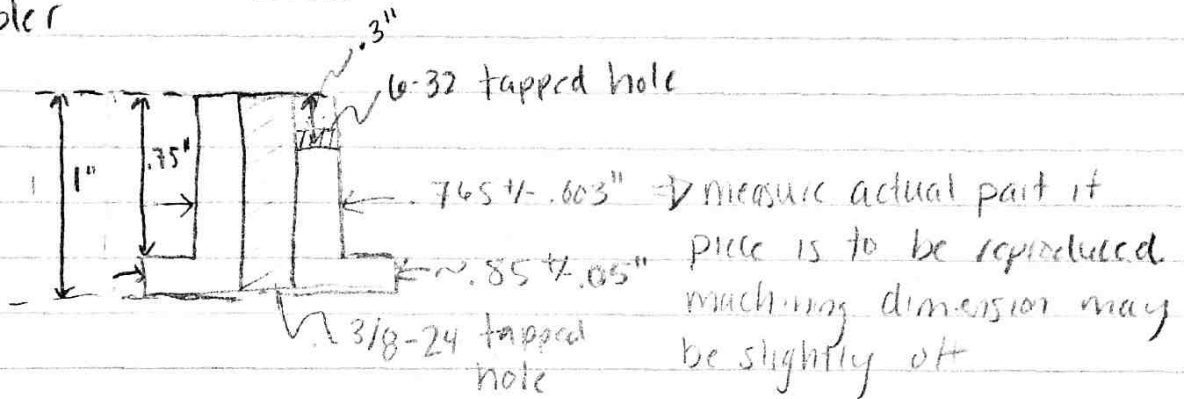 .3"
6-32 tapped hole
1"
.75"
.765 +/- .003" ⇒ measure actual part if
piece is to be reproduced.
machining dimension may
be slightly off
~.85 +/- .05"
3/8-24 tapped
hole